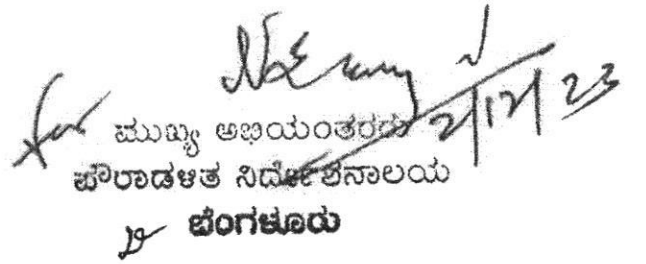 2/12/23
for ಮುಖ್ಯ ಅಭಿಯಂತರರು
ಪೌರಾಡಳಿತ ನಿರ್ದೇಶನಾಲಯ
ಬೆಂಗಳೂರು